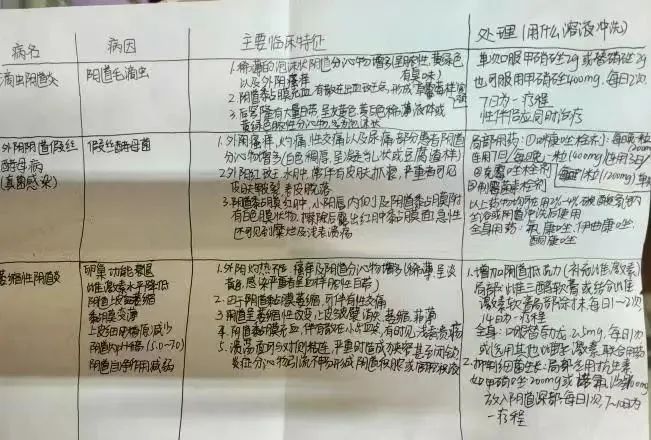 病名 病因 主要临床特征 处理(用什么溶液冲洗)
滴虫阴道炎 阴道毛滴虫
1.稀薄的泡沫状阴道分泌物增多(呈脓性,黄绿色有臭味)
以及外阴瘙痒
2.阴道黏膜充血,有散在出血点,形成"草莓样"
3.后穹隆有大量白带,呈灰黄色、黄白色稀薄液体或
黄绿色脓性分泌物,
单次口服甲硝唑2g或替硝唑2g
也可服用甲硝唑400mg,每日2次,
7日为一疗程
性伴侣应同时治疗
外阴阴道假丝
酵母病
(真菌感染)
假丝酵母菌
1.外阴瘙痒,灼痛,性交痛以及尿痛,部分患者阴道
分泌物增多(白色稠厚,呈凝乳状或豆腐渣样)
2.外阴红斑、水肿,常伴有皮肤抓痕,严重者可见
皮肤皲裂、表皮脱落
3.阴道黏膜红肿,小阴唇内侧及阴道黏膜附
有白色膜状物,擦除后露出红肿黏膜面,急性
还可见到糜烂及浅表溃疡
局部用药:
全身用药:
萎缩性阴道炎
卵巢功能衰退
雌激素水平降低
阴道上皮萎缩
黏膜变薄
上皮细胞糖原减少
阴道内pH增(5.0-7.0)
阴道自净作用减弱
1.外阴灼热不适、瘙痒及阴道分泌物增多(稀薄,呈淡
黄色,感染严重者呈血样脓性白带)
2.由于阴道黏膜萎缩,可伴有性交痛
3.阴道呈萎缩性改变,上皮皱襞消失、萎缩、菲薄
4.阴道黏膜充血,伴有散在小出血点,有时见浅表溃疡
5.溃疡面可与对侧粘连,严重时造成狭窄甚至闭锁
炎症分泌物引流不畅形成阴道积脓或宫腔积脓
1.增加阴道抵抗力(补充雌激素)
局部:雌三醇软膏或结合雌
激素软膏局部涂抹,每日1~2次,
14日为一疗程
全身:口服替勃龙2.5mg,每日1次
或选用其他雌孕激素联合用药
2.抑制细菌生长:局部应用抗生素
如甲硝唑200mg或诺氟沙星100mg
放入阴道深部,每日1次,7~10日为
一疗程